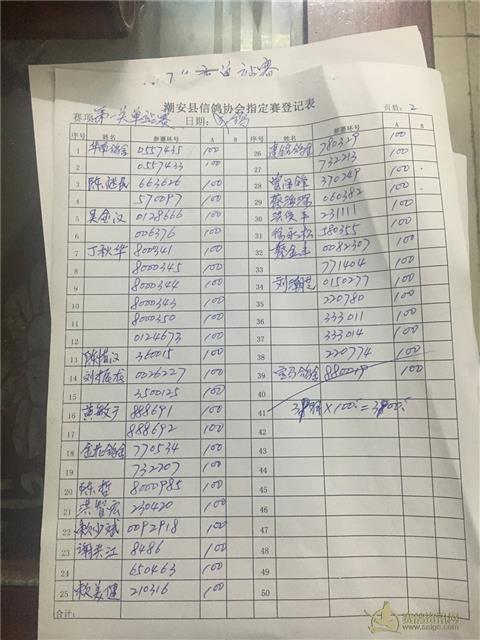 潮安县信鸽协会指定赛登记表
赛项: 第一关单站赛 日期: 页数: 2
序号 姓名 参赛环号 A B 序号 姓名 参赛环号 A B
1 华南鸽舍 0557435 100 26 780329 100
2 0557433 100 27 732213 100
3 陈继民 663626 100 28 370249 100
4 570097 100 29 060382 100
5 吴金汉 0128666 100 30 洪俊丰 231111 100
6 006376 100 31 580355 100
7 丁秋华 800341 100 32 蔡金丰 0082307 100
8 8000345 100 33 771404 100
9 8000344 100 34 刘潮芝 0150277 100
10 8000343 100 35 220780 100
11 8000350 100 36 333011 100
12 0124673 100 37 333014 100
13 360015 100 38 220774 100
14 0026227 100 39 880019 100
15 3500125 100 40
16 黄敏子 888691 100 41
17 888692 100 42
18 金龙鸽舍 770534 100 43
19 732707 100 44
20 陈哲 8000985 100 45
21 洪智宏 230420 100 46
22 赖少斌 0092918 100 47
23 谢兴江 8486 100 48
24 650463 100 49
25 赖美健 210316 100 50
合计:
www.saige.com